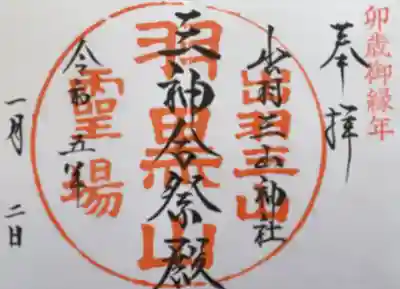 卯歳御縁年
奉拝
出羽三山神社
三神合祭殿
令和五年
一月二日
出羽三山
羽黒山
霊場